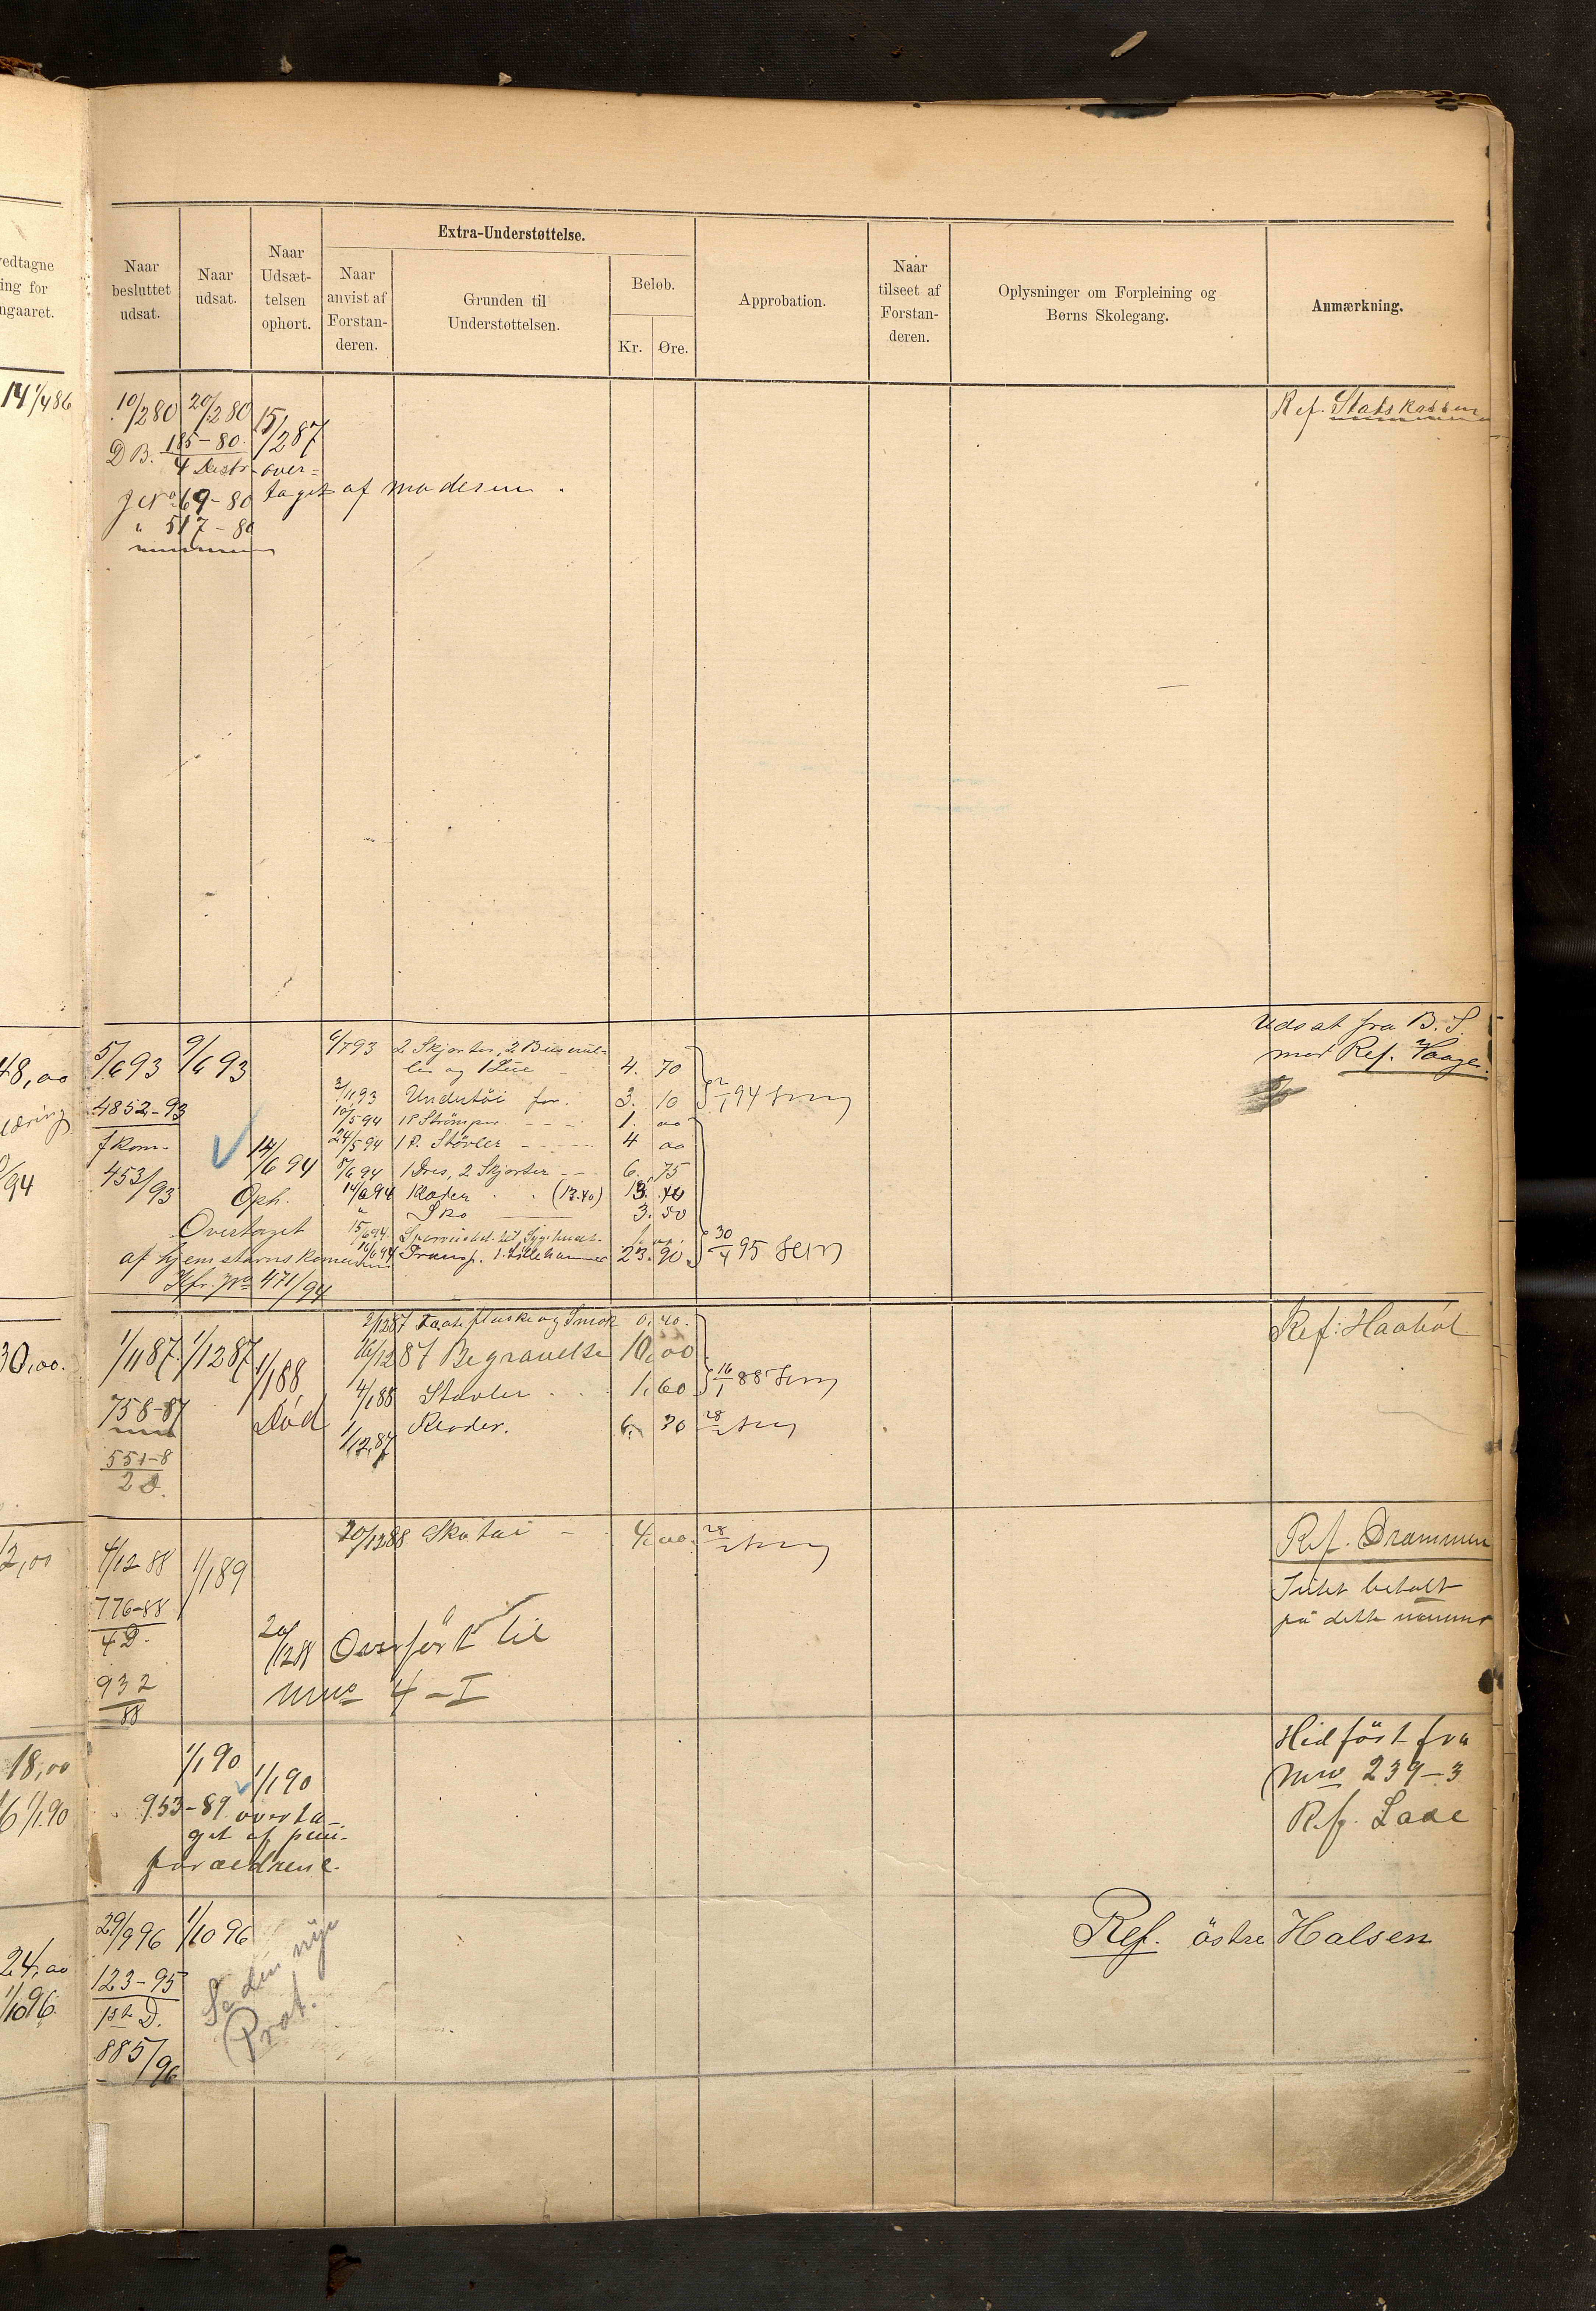 vedtagne
ing for
ngaaret.
Naar
besluttet
udsat.
Naar
udsat.
Naar
Udsæt-
telsen
ophørt.
Extra-Understøttelse.
Naar
anvist af
Forstan-
deren.
Grunden til
Understøttelsen.
Beløb.
Kr.
Øre.
Approbation.
Naar
tilseet af
Forstan-
deren.
Oplysninger om Forpleining og
Børns Skolegang.
Anmærkning.
14 1/4 86
10/2 80 20/2 80 15/2 87
Ref. Statskassen
D B. 185-80.
4 Distr. over-
J No 69-80 taget af moderen.
" 517-80
48,00 5/6 93 9/6 93
6/7 93 2 Skjorter, 2 Buserul-
ler og 1 Lue 4. 70
Udsat fra B. S.
med Ref. Vaage.
4852-93
2/11 93 Undertöi for. 3. 10 2/1 94
10/5 94 1 P Strömper 1. 00
f kom. 24/5 94 1 P. Støvler 4 00
453/93 14/6 94 8/6 94 1 Dres, 2 Skjorter 6. 75
/94
Oph. 14/6 94 Klæder (13.40) 13. 40
" Sko 3. 50
Overtaget 15/6 94
af hjemstavnskommunen 16/6 94 Transp. t. Lillehammer 23. 90 30/4 95
Kfr. No 471/94
2/12 87 Taateflaske og Smok 0. 40.
Ref: Haabøl
30,00. 1/11 87. 1/12 87 1/1 88 16/12 87 Begravelse 10,00
4/1 88 Støvler 1,60 16/1 88
758-87 Död 1/12 87 Klæder. 6. 30 28/2
551-8
2 D.
20/12 88 Skotøi 4,00. 28/2
Ref. Drammen
12,00 4/12 88 1/1 89
Intet betalt
på dette nummer
776-88
4 D.
20/12 88 Overfört til
932
88
Nrro 4-I
Hidfört fra
Nrro 239-3
Ref. Lade
18,00 1/1 90 1/1 90
6 1/1 90 953-89 overta-
get af pleie-
forældrene.
29/9 96 1/10 96
Ref. östre Halsen
24,00 123-95
1/10 96. 1ste D.
885/96
Se den nye
Prot.